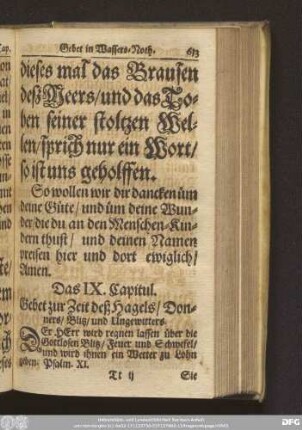 Gebet in Wassers-Noth. 613
dieses mal das Brausen
deß Meers/und das To-
ben seiner stoltzen Wel-
len/sprich nur ein Wort/
so ist uns geholffen.
So wollen wir dir dancken üm
deine Güte/ und üm deine Wun-
der/die du an den Menschen-Kin-
dern thust/ und deinen Namen
preisen hier und dort ewiglich/
Amen.
Das IX. Capitul.
Gebet zur Zeit deß Hagels/ Don-
ners/ Blitz/ und Ungewitters.
DEr HErr wird regnen lassen über die
Gottlosen Blitz/ Feuer und Schwefel/
und wird ihnen ein Wetter zu Lohn
geben. Psalm. XI.
Tt ij Sie
DFG